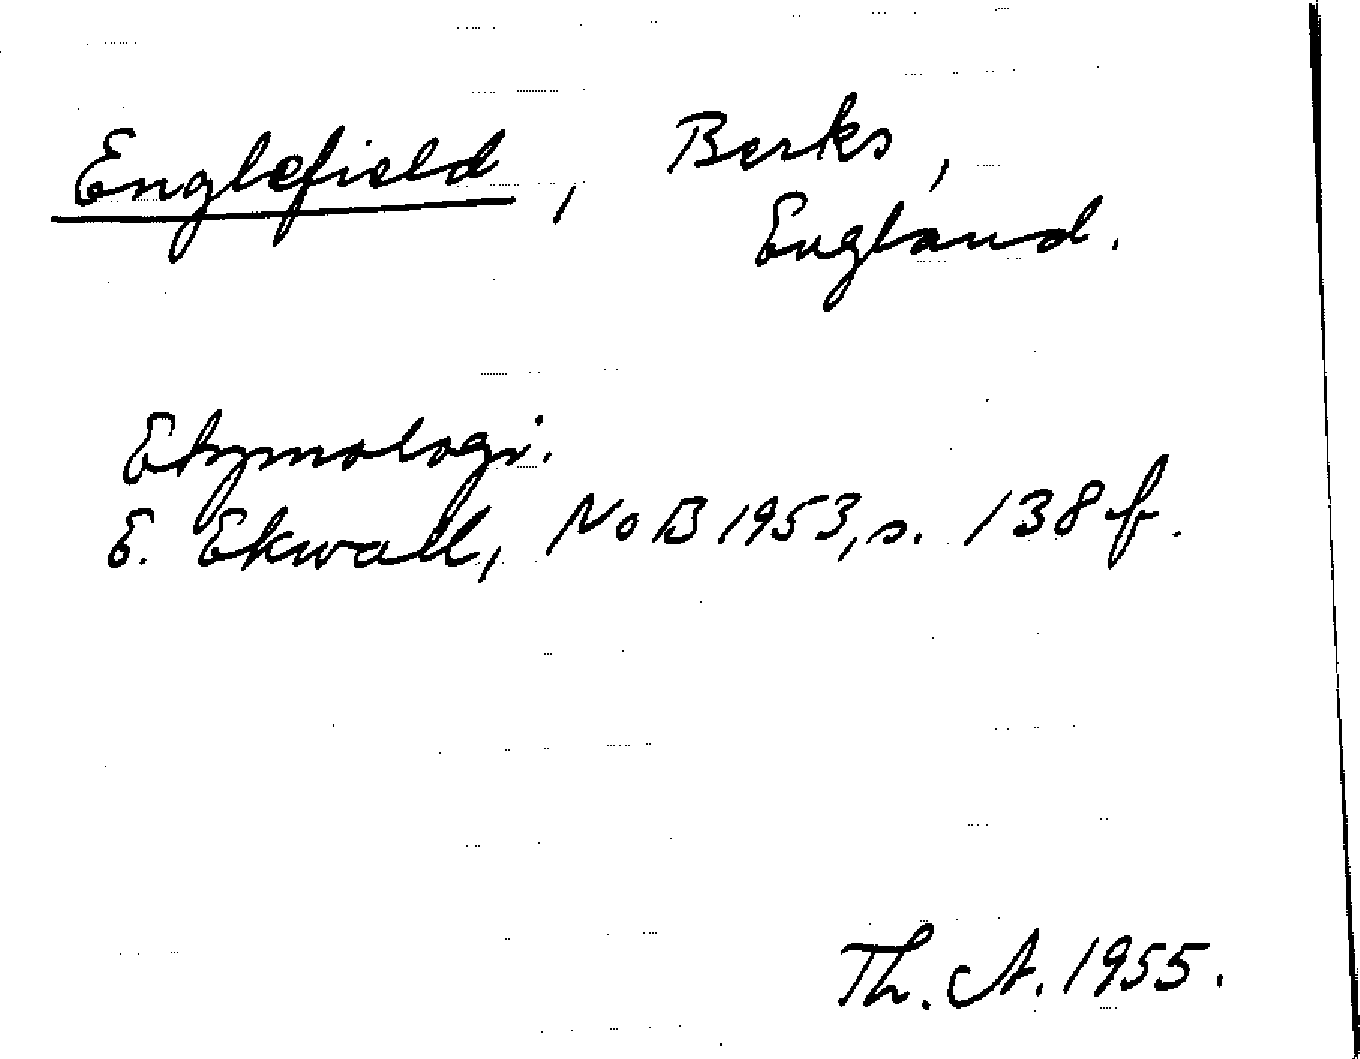 Englefield, Berks,
England.
Etymologi.
E. Ekwall, NoB 1953, s. 138 f.
Th. A. 1955.